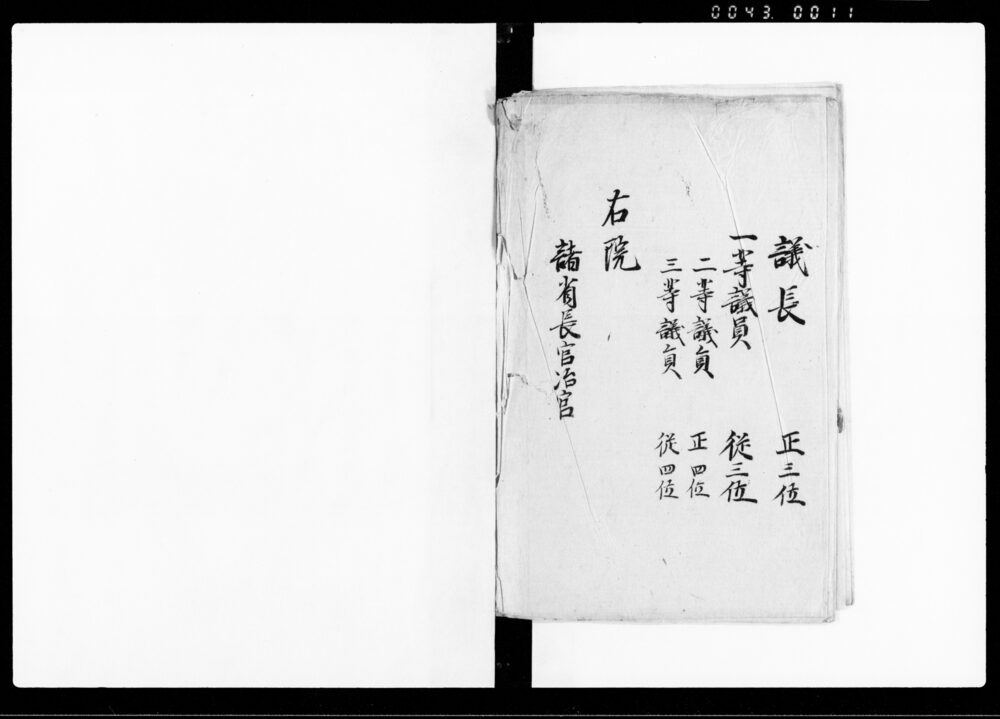 0043. 0011
議長 正三位
一等議員 従三位
二等議員 正四位
三等議員 従四位
右院
諸省長官次官